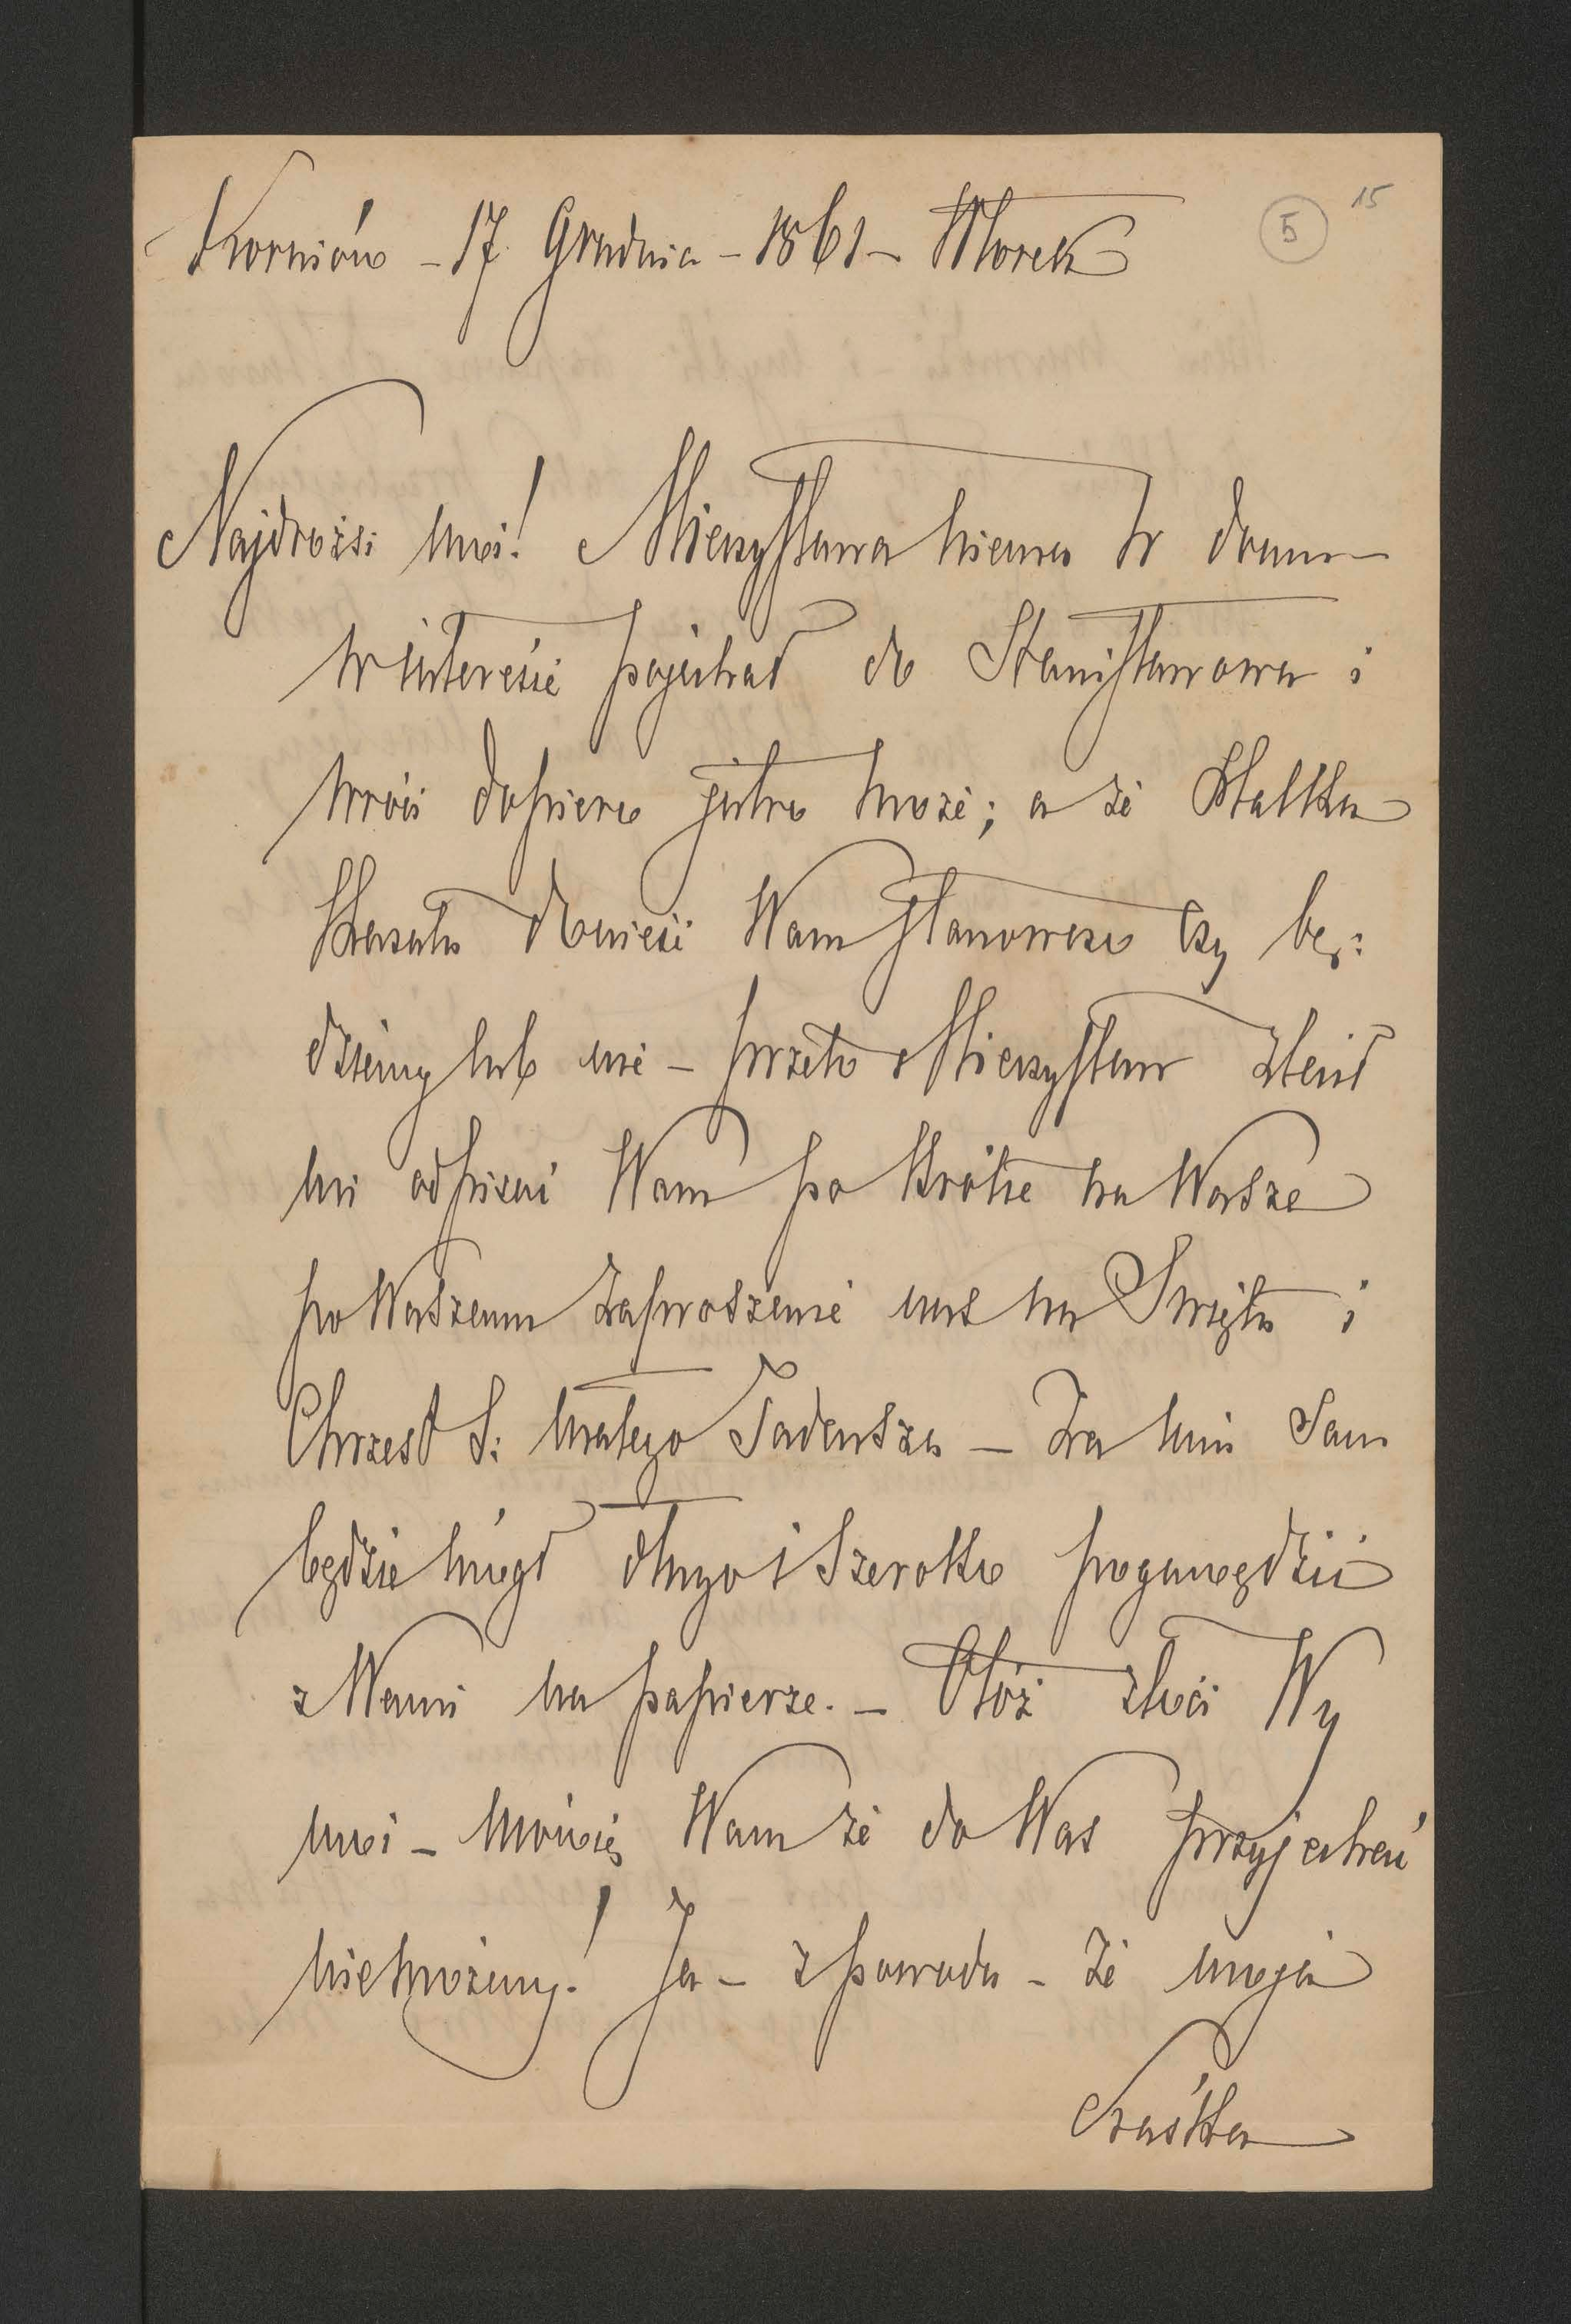 Korniów – 17. Grudnia – 1861 – Wtorek
5
15
Najdrożsi moi! Mieczysława niema w domu
w interesie pojechał do Stanisławowa i
wróci dopiero jutro może; a że Matka
kazała donieść Wam stanowczo czy bę:
dziemy lub nie – przeto Mieczysław zlecił
mi odpisać Wam po krótce na Wasze
po Waszemu zaproszenie nas na Święta i
Chrzest S: małego Tadeusza – Za nim Sam
będzie mógł długo i szeroko pogawędzić
z Wami na papierze. – Otóż złoci Wy
moi – mówię Wam że do Was przyjechać
niemożemy! Ja – z powodu – że moja